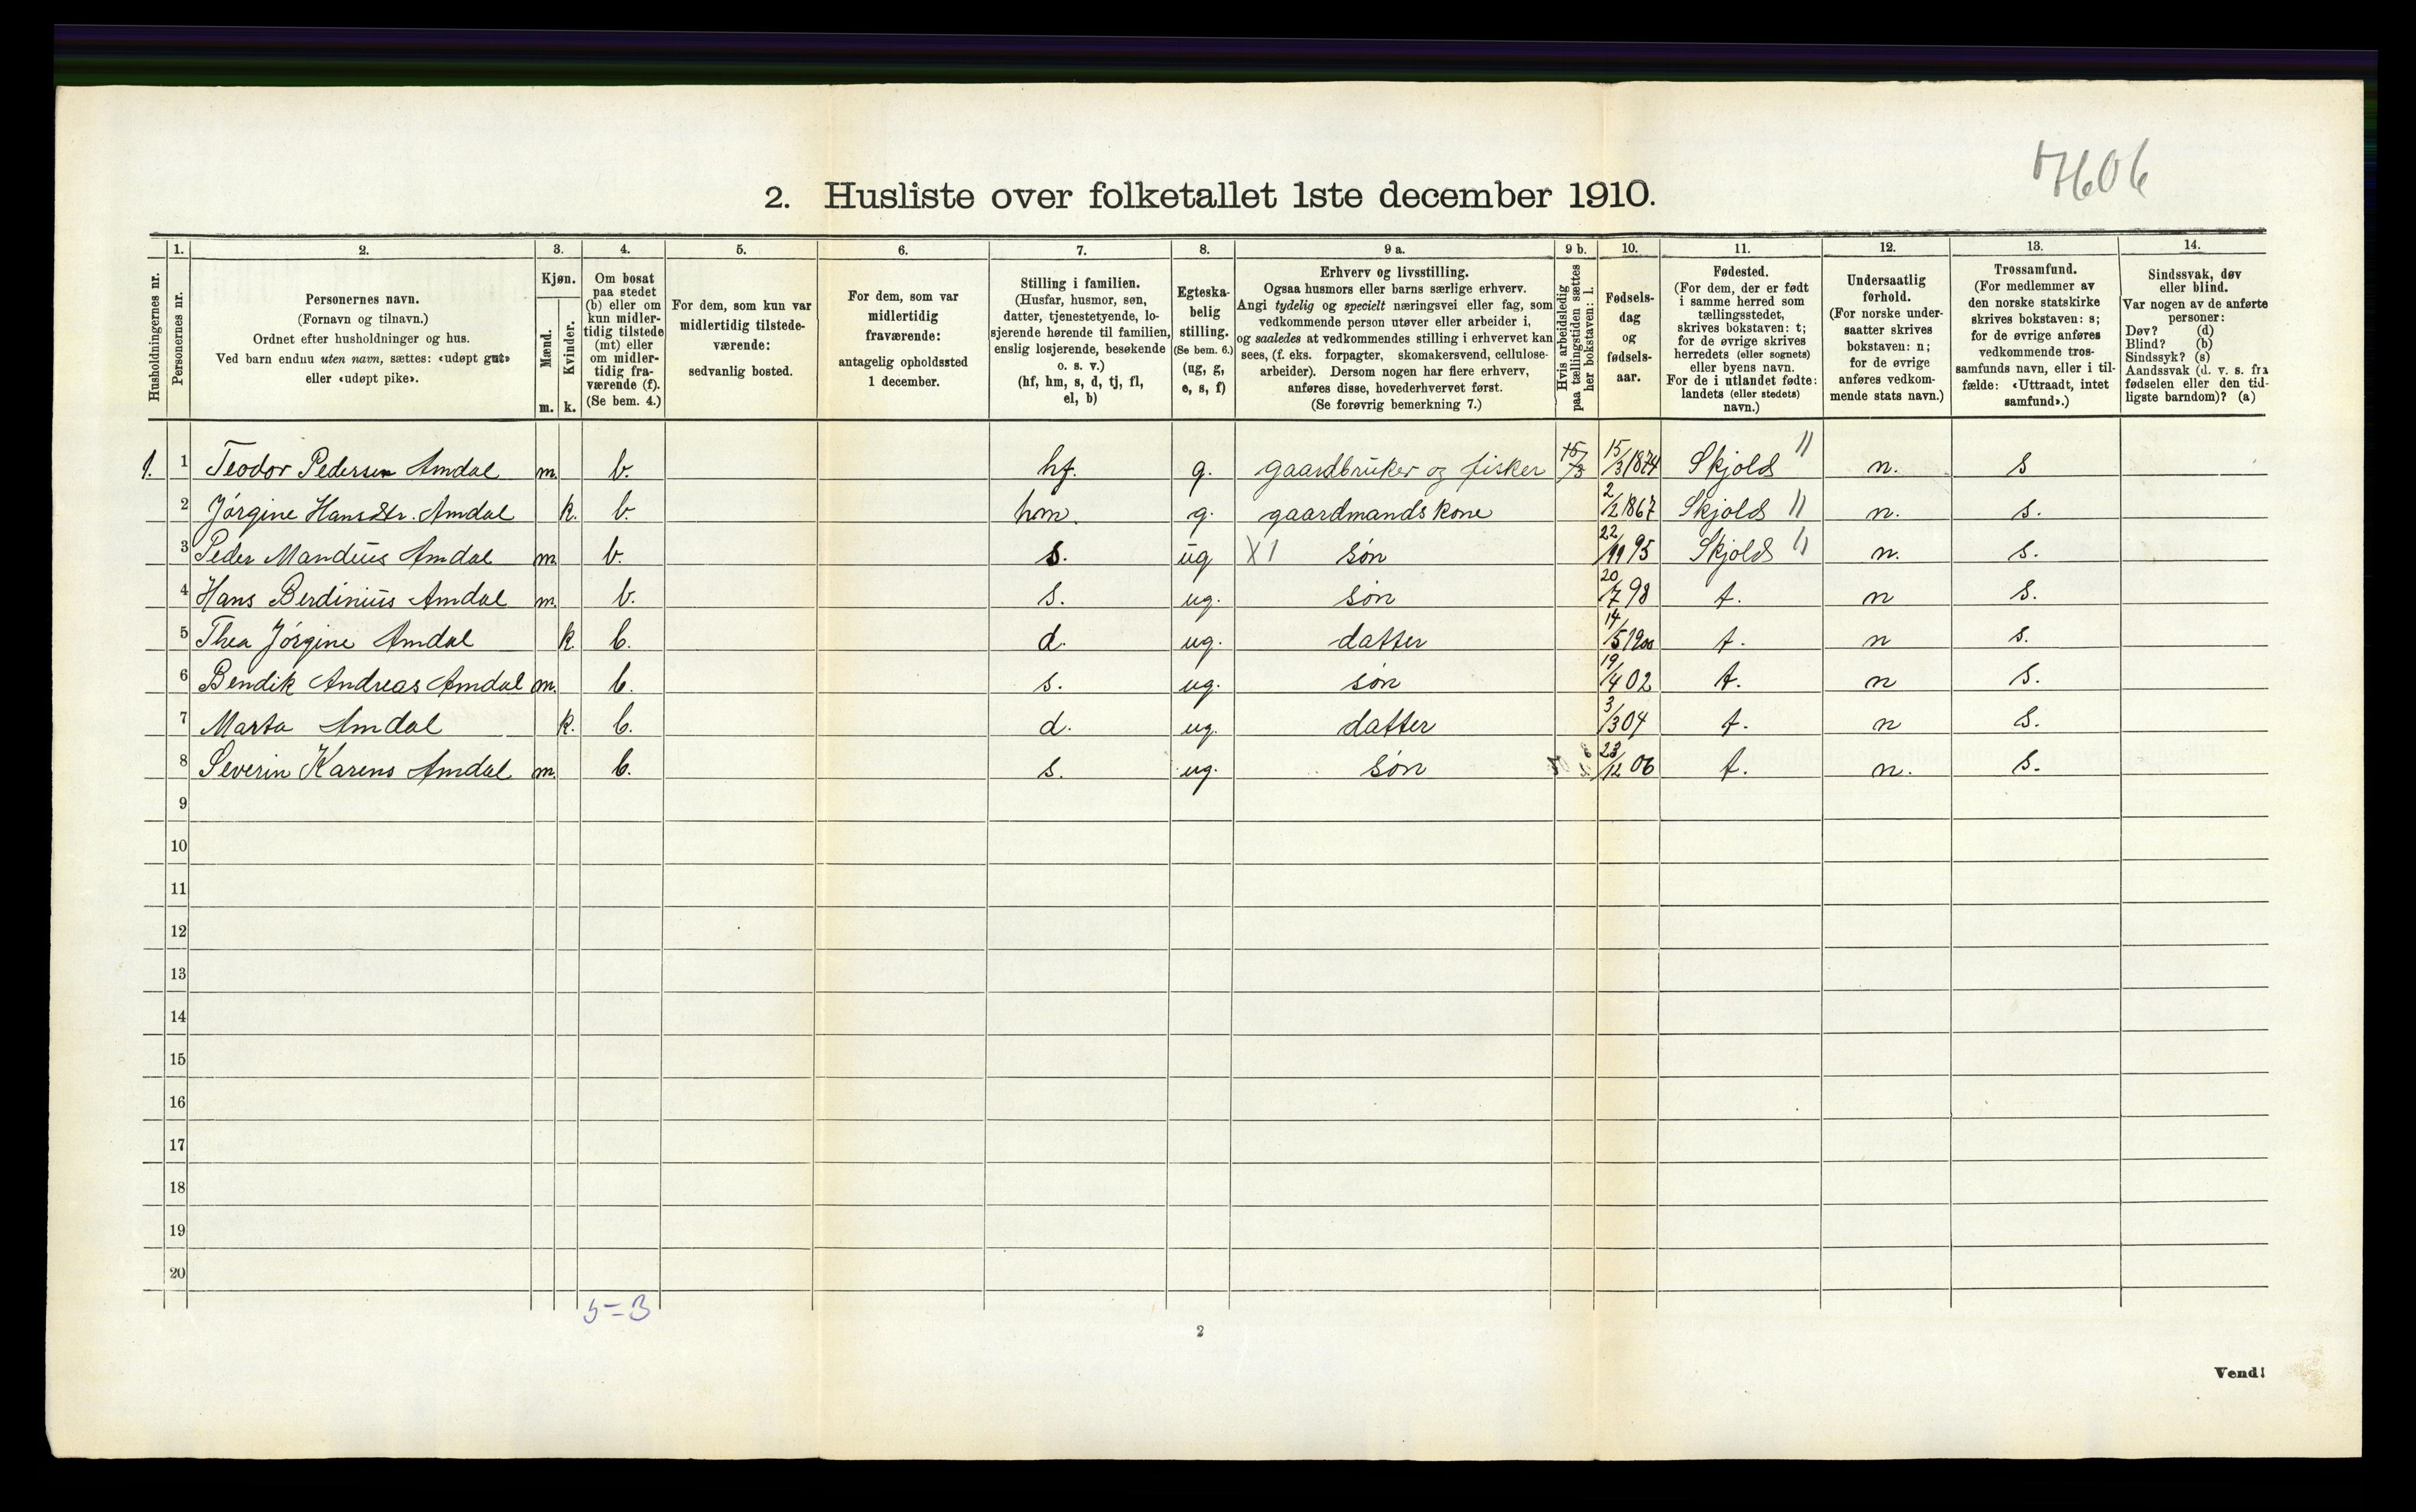 7606
2. Husliste over folketallet 1ste december 1910.
1. 2. 3. 4. 5. 6. 7. 8. 9 a. 9 b. 10. 11. 12. 13. 14.
Husholdningernes nr.
Personernes nr.
Personernes navn.
(Fornavn og tilnavn.)
Ordnet efter husholdninger og hus.
Ved barn endnu uten navn, sættes: «udøpt gut»
eller «udøpt pike».
Kjøn.
Mænd.
Kvinder.
m. k.
Om bosat
paa stedet
(b) eller om
kun midler-
tidig tilstede
(mt) eller
om midler-
tidig fra-
værende (f).
(Se bem. 4.)
For dem, som kun var
midlertidig tilstede-
værende:
sedvanlig bosted.
For dem, som var
midlertidig
fraværende:
antagelig opholdssted
1 december.
Stilling i familien.
(Husfar, husmor, søn,
datter, tjenestetyende, lo-
sjerende hørende til familien,
enslig losjerende, besøkende
o. s. v.)
(hf, hm, s, d, tj, fl,
el, b)
Egteska-
belig
stilling.
(Se bem. 6.)
(ug, g,
e, s, f)
Erhverv og livsstilling.
Ogsaa husmors eller barns særlige erhverv.
Angi tydelig og specielt næringsvei eller fag, som
vedkommende person utøver eller arbeider i,
og saaledes at vedkommendes stilling i erhvervet kan
sees, (f. eks. forpagter, skomakersvend, cellulose-
arbeider). Dersom nogen har flere erhverv,
anføres disse, hovederhvervet først.
(Se forøvrig bemerkning 7.)
Hvis arbeidsledig
paa tællingstiden sættes
her bokstaven: l.
Fødsels-
dag
og
fødsels-
aar.
Fødested.
(For dem, der er født
i samme herred som
tællingsstedet,
skrives bokstaven: t;
for de øvrige skrives
herredets (eller sognets)
eller byens navn.
For de i utlandet fødte:
landets (eller stedets)
navn.)
Undersaatlig
forhold.
(For norske under-
saatter skrives
bokstaven: n;
for de øvrige
anføres vedkom-
mende stats navn.)
Trossamfund.
(For medlemmer av
den norske statskirke
skrives bokstaven: s;
for de øvrige anføres
vedkommende tros-
samfunds navn, eller i til-
fælde: «Uttraadt, intet
samfund».)
Sindssvak, døv
eller blind.
Var nogen av de anførte
personer:
Døv? (d)
Blind? (b)
Sindssyk? (s)
Aandssvak (d. v. s. fra
fødselen eller den tid-
ligste barndom)? (a)
1. 1 Teodor Pedersen Amdal m. b. hf. g. gaardbruker og fisker 15/3 15/3 1874 Skjold // n. s
2 Jórgine Hansdtr. Amdal k. b. hm. g. gaardmandskone 2/2 1867 Skjold // n. s.
3 Peder Mandius Amdal m. b. s. ug X1 són 22/11 95 Skjold // n. s.
4 Hans Berdinius Amdal m. b. s. ug. són 20/7 98 t. n s.
5 Thea Jórgine Amdal k b. d. ug. datter 14/5 1900 t. n s.
6 Bendik Andreas Amdal m. b. s. ug. són 19/4 02 t. n s.
7 Marta Amdal k. b. d. ug. datter 3/3 04 t. n s.
8 Severin Karens Amdal m. b. s. ug. són 23/12 06 t. n. s.
9
10
11
12
13
14
15
16
17
18
19
20
5=3
2
Vend!